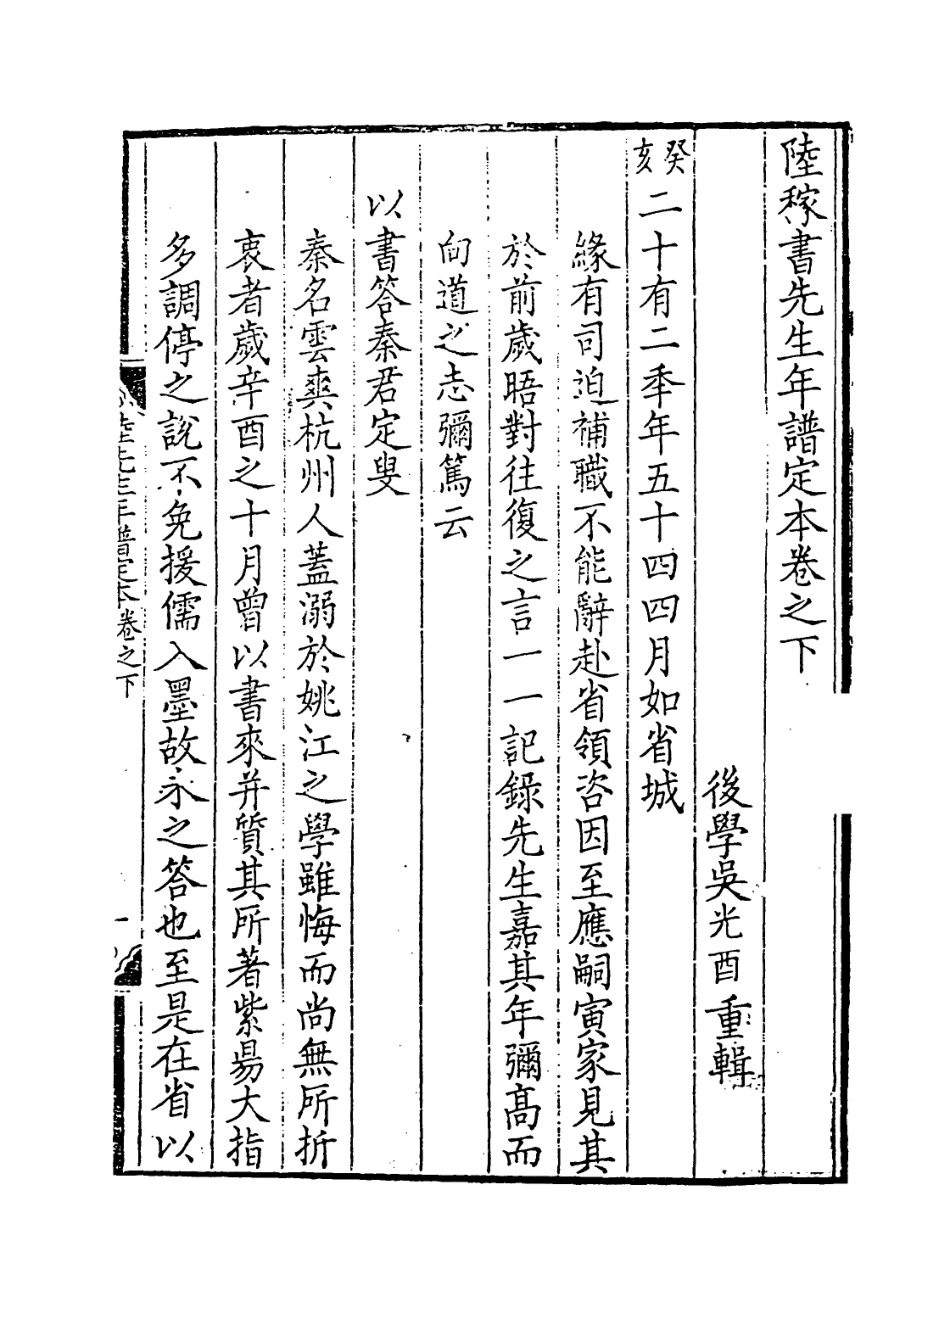 陸稼書先生年譜定本卷之下
後學吳光酉重輯
癸亥二十有二季年五十四四月如省城
緣有司迫補職不能辭赴省領咨因至應嗣寅家見其
於前歲晤對往復之言一一記錄先生嘉其年彌高而
向道之志彌篤云
以書答秦君定叟
秦名雲爽杭州人蓋溺於姚江之學雖悔而尚無所折
衷者歲辛酉之十月曾以書來并質其所著紫昜大指
多調停之說不免援儒入墨故未之答也至是在省以
陸先生年譜定本卷之下
一